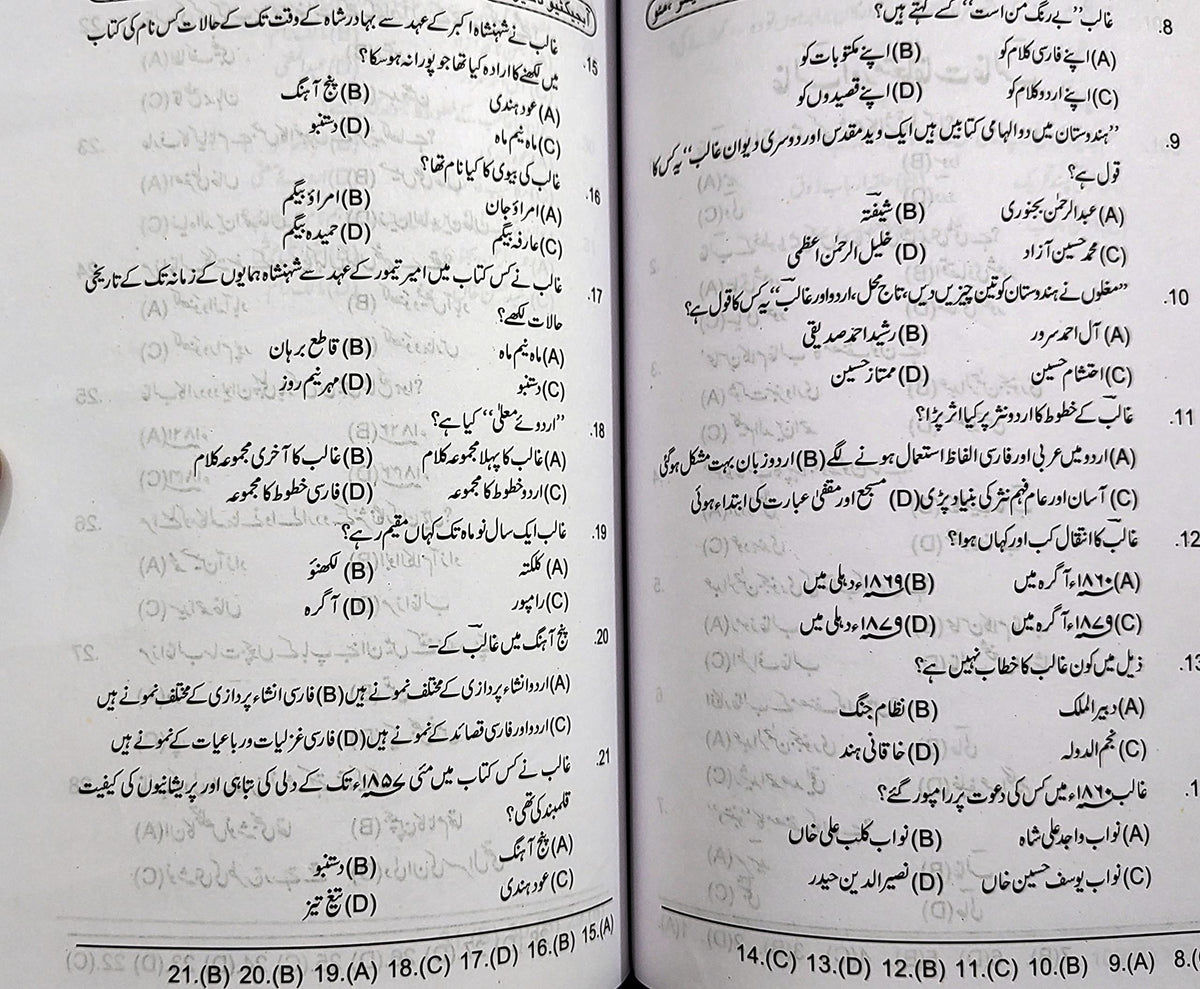 غالب "بے رنگ من است" کسے کہتے ہیں؟
.8
(A) اپنے فارسی کلام کو (B) اپنے مکتوبات کو
(C) اپنے اردو کلام کو (D) اپنے قصیدوں کو
.9 "ہندوستان میں دو الہامی کتابیں ہیں ایک وید مقدس اور دوسری دیوان غالب" یہ کس کا
قول ہے؟
(A) عبدالرحمٰن بجنوری (B) شیفتہ
(C) محمد حسین آزاد (D) خلیل الرحمٰن اعظمی
.10 "مغلوں نے ہندوستان کو تین چیزیں دیں، تاج محل، اردو اور غالب" یہ کس کا قول ہے؟
(A) آل احمد سرور (B) رشید احمد صدیقی
(C) احتشام حسین (D) ممتاز حسین
.11 غالب کے خطوط کا اردو نثر پر کیا اثر پڑا؟
(A) اردو میں عربی اور فارسی الفاظ استعمال ہونے لگے (B) اردو زبان بہت مشکل ہو گئی
(C) آسان اور عام فہم نثر کی بنیاد پڑی (D) مسجع اور مقفیٰ عبارت کی ابتداء ہوئی
.12 غالب کا انتقال کب اور کہاں ہوا؟
(A) ۱۸۶۰ء آگرہ میں (B) ۱۸۶۹ء دہلی میں
(C) ۱۸۷۹ء آگرہ میں (D) ۱۸۷۹ء دہلی میں
.13 ذیل میں کون غالب کا خطاب نہیں ہے؟
(A) دبیر الملک (B) نظام جنگ
(C) نجم الدولہ (D) خاقانی ہند
.1 غالب ۱۸۶۰ء میں کس کی دعوت پر رامپور گئے؟
(A) نواب واجد علی شاہ (B) نواب کلب علی خاں
(C) نواب یوسف حسین خاں (D) نصیر الدین حیدر
8.( 9.(A) 10.(B) 11.(C) 12.(B) 13.(D) 14.(C)
.15 غالب نے شہنشاہ اکبر کے عہد سے بہادر شاہ کے وقت تک کے حالات کس نام کی کتاب
میں لکھنے کا ارادہ کیا تھا جو پورا نہ ہو سکا؟
(A) عود ہندی (B) پنج آہنگ
(C) ماہ نیم ماہ (D) دستنبو
.16 غالب کی بیوی کا کیا نام تھا؟
(A) امراؤ جان (B) امراؤ بیگم
(C) عارفہ بیگم (D) حمیدہ بیگم
.17 غالب نے کس کتاب میں امیر تیمور کے عہد سے شہنشاہ ہمایوں کے زمانہ تک کے تاریخی
حالات لکھے؟
(A) ماہ نیم ماہ (B) قاطع برہان
(C) دستنبو (D) مہر نیم روز
.18 "اردوئے معلیٰ" کیا ہے؟
(A) غالب کا پہلا مجموعہ کلام (B) غالب کا آخری مجموعہ کلام
(C) اردو خطوط کا مجموعہ (D) فارسی خطوط کا مجموعہ
.19 غالب ایک سال نو ماہ تک کہاں مقیم رہے؟
(A) کلکتہ (B) لکھنؤ
(C) رامپور (D) آگرہ
.20 پنج آہنگ میں غالب کے –
(A) اردو انشاء پردازی کے مختلف نمونے ہیں (B) فارسی انشاء پردازی کے مختلف نمونے ہیں
(C) اردو اور فارسی قصائد کے نمونے ہیں (D) فارسی غزلیات و رباعیات کے نمونے ہیں
.21 غالب نے کس کتاب میں مئی ۱۸۵۷ء تک کے دلی کی تباہی اور پریشانیوں کی کیفیت
قلمبند کی تھی؟
(A) پنج آہنگ (B) دستنبو
(C) عود ہندی (D) تیغ تیز
15.(A) 16.(B) 17.(D) 18.(C) 19.(A) 20.(B) 21.(B)